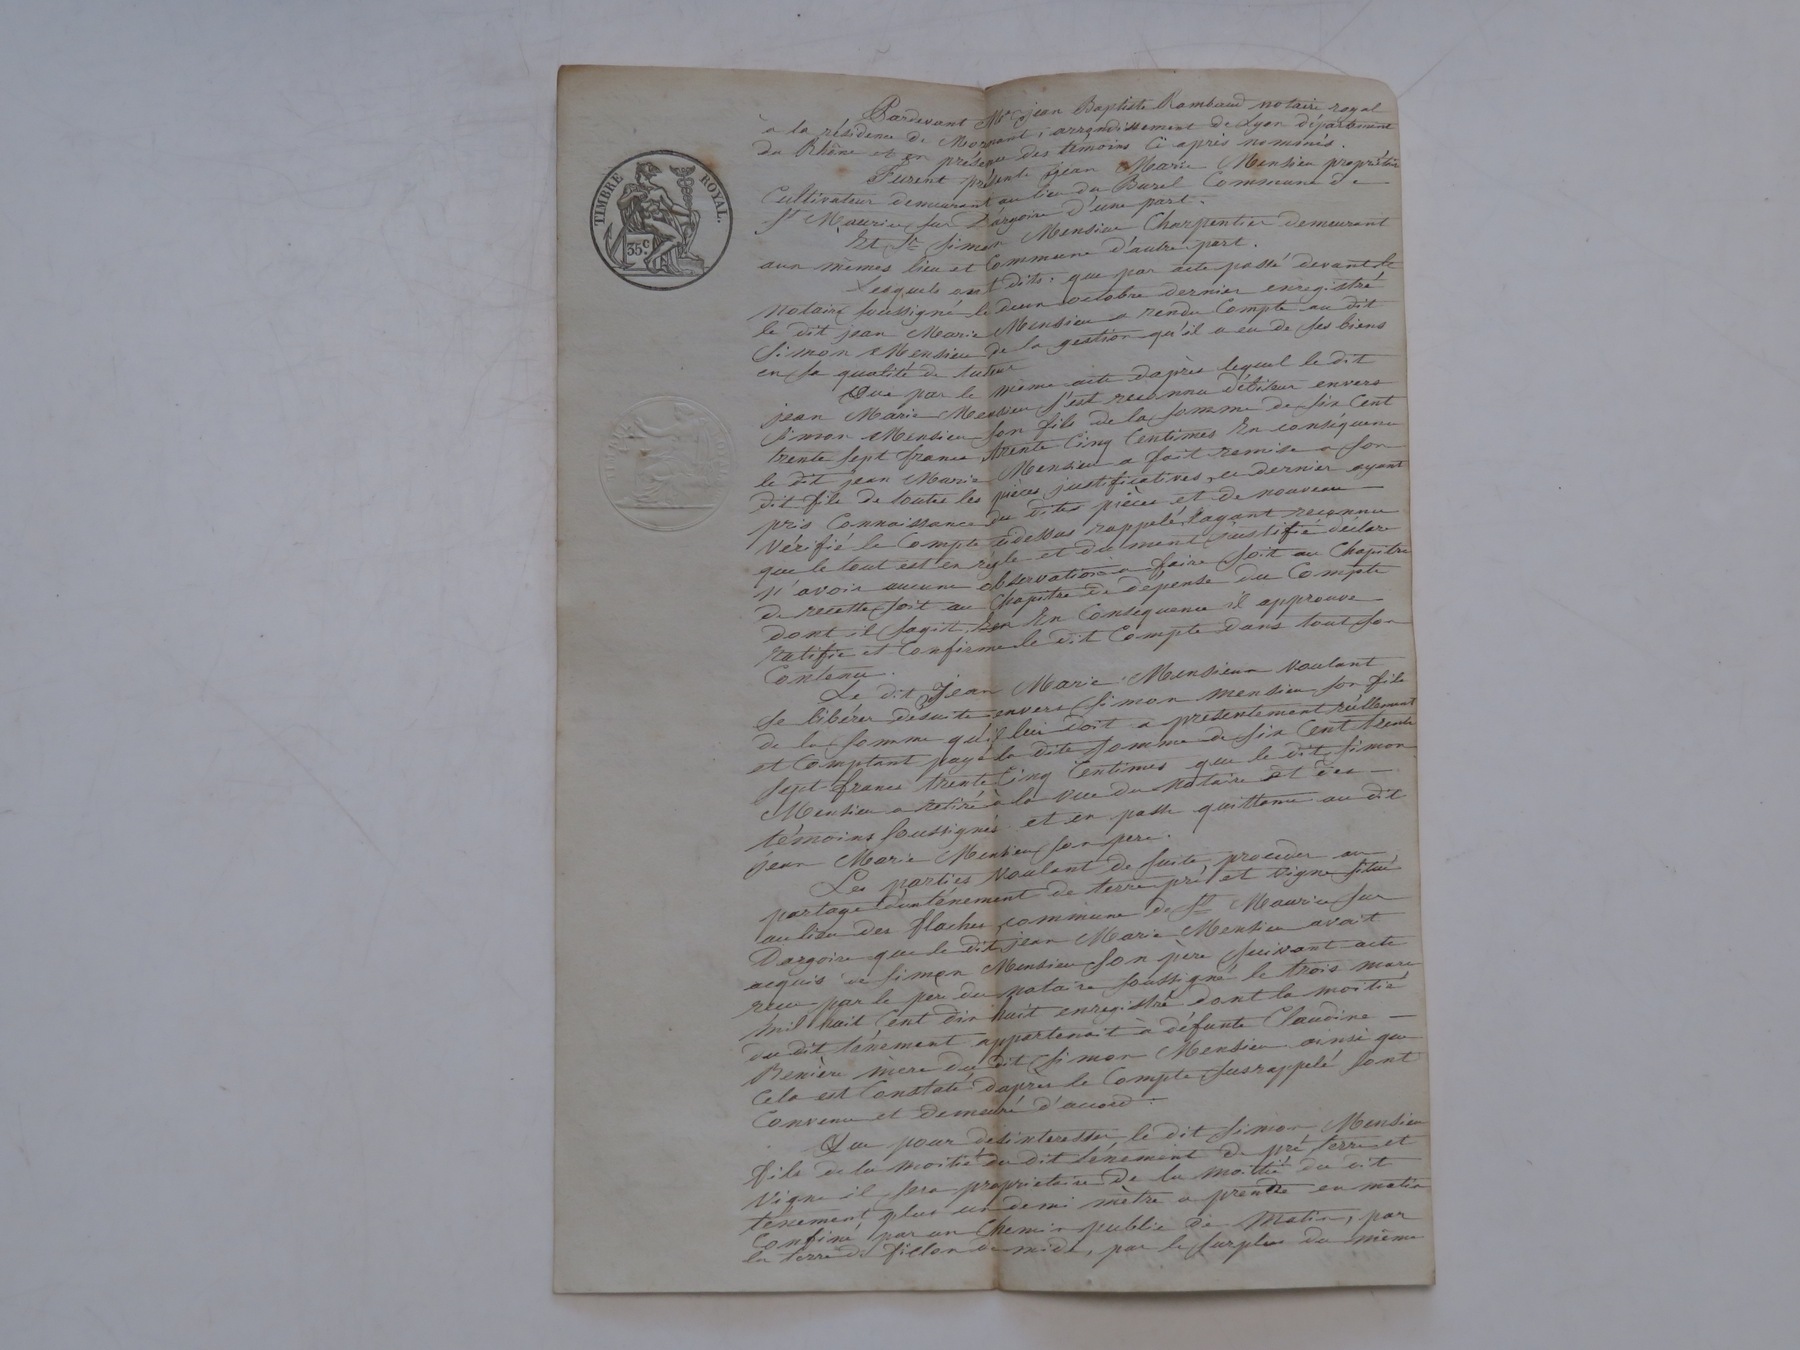 TIMBRE ROYAL.
35 c.
Pardevant Me jean Baptiste Rambaud notaire royal
à la résidence de Mornant, arrondissement de Lyon département
du Rhône et en présence des témoins ci après nommés.
Furent présents jean Marie Mensieu propriétaire
Cultivateur demeurant au lieu du Burel Commune de
St Maurice sur Dargoire d'une part.
Et Sr Simon Mensieu Charpentier demeurant
aux mêmes lieu et Commune d'autre part.
Lesquels ont dits: que par acte passé devant le
Notaire soussigné le deux octobre dernier enregistré
le dit jean Marie Mensieu a rendu Compte au dit
Simon Mensieu de la gestion qu'il a eu de ses biens
en sa qualité de tuteur
Que par le même acte daprès lequel le dit
jean Marie Mensieu s'est reconnu débiteur envers
Simon Mensieu son fils de la somme de six Cent
trente sept francs trente Cinq Centimes En conséquence
le dit jean Marie Mensieu a fait remise a son
dit fils de toutes les pièces justificatives, ce dernier ayant
pris Connaissance du dites pièces et de nouveau
Vérifié le Compte cidessus rappelé, layant reconnu
que le tout est en règle et du ment justifié déclare
n'avoir aucune observation a faire soit au Chapitre
de recette soit au Chapitre de dépense du Compte
dont il sagit, En Conséquence il approuve
Ratifie et Confirme le dit Compte dans tout son
Contenu.
Le dit Jean Marie Mensieu voulant
se libérer desuite envers Simon Mensieu son fils
de la somme qu'il lui doit a presentement réellement
et Comptant payé la dite somme de six Cent trente
sept francs trente Cinq Centimes que le dit Simon
Mensieu a retiré à la vue du notaire et des
témoins soussignés et en passe quittance au dit
jean Marie Mensieu son père.
Les parties voulant de suite, proceder au
partage d'un ténement de terre pré et vigne situé
au lieu des flaches commune de St Maurice sur
Dargoire que le dit jean Marie Mensieu avait
acquis de Simon Mensieu son père suivant acte
recu par le père du notaire soussigné le trois mars
mil huit Cent dix huit enregistré dont la moitié
du dit ténement appartenait à défunte Claudine
mère du dit Simon Mensieu ainsi que
Cela est Constaté daprès le Compte susrappelé sont
Convenu et demeuré d'accord.
Que pour desinteresser le dit Simon Mensieu
fils de la moitié du dit ténement de pré terre et
Vigne il sera propriétaire de la moitié du dit
tenement plus un demi mètre a prendre en matin
Confiné par un Chemin public de Matin, par
la terre de fillon de midi, par le surplus du même